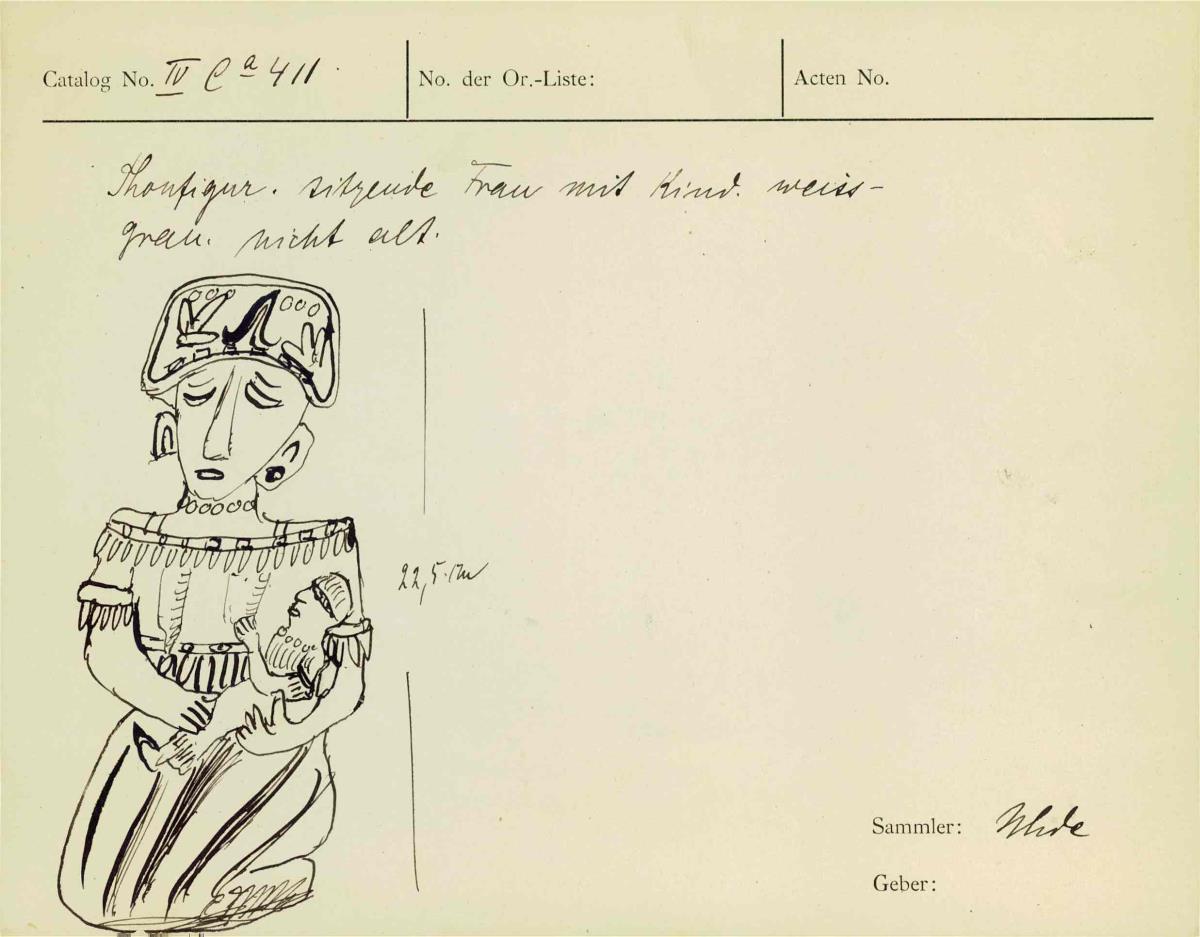 Catalog No. IV Ca 411
No. der Or.-Liste:
Acten No.
Thonfigur. sitzende Frau mit Kind. weiss-
grau. nicht alt.
22,5 cm
Sammler: Uhde
Geber: